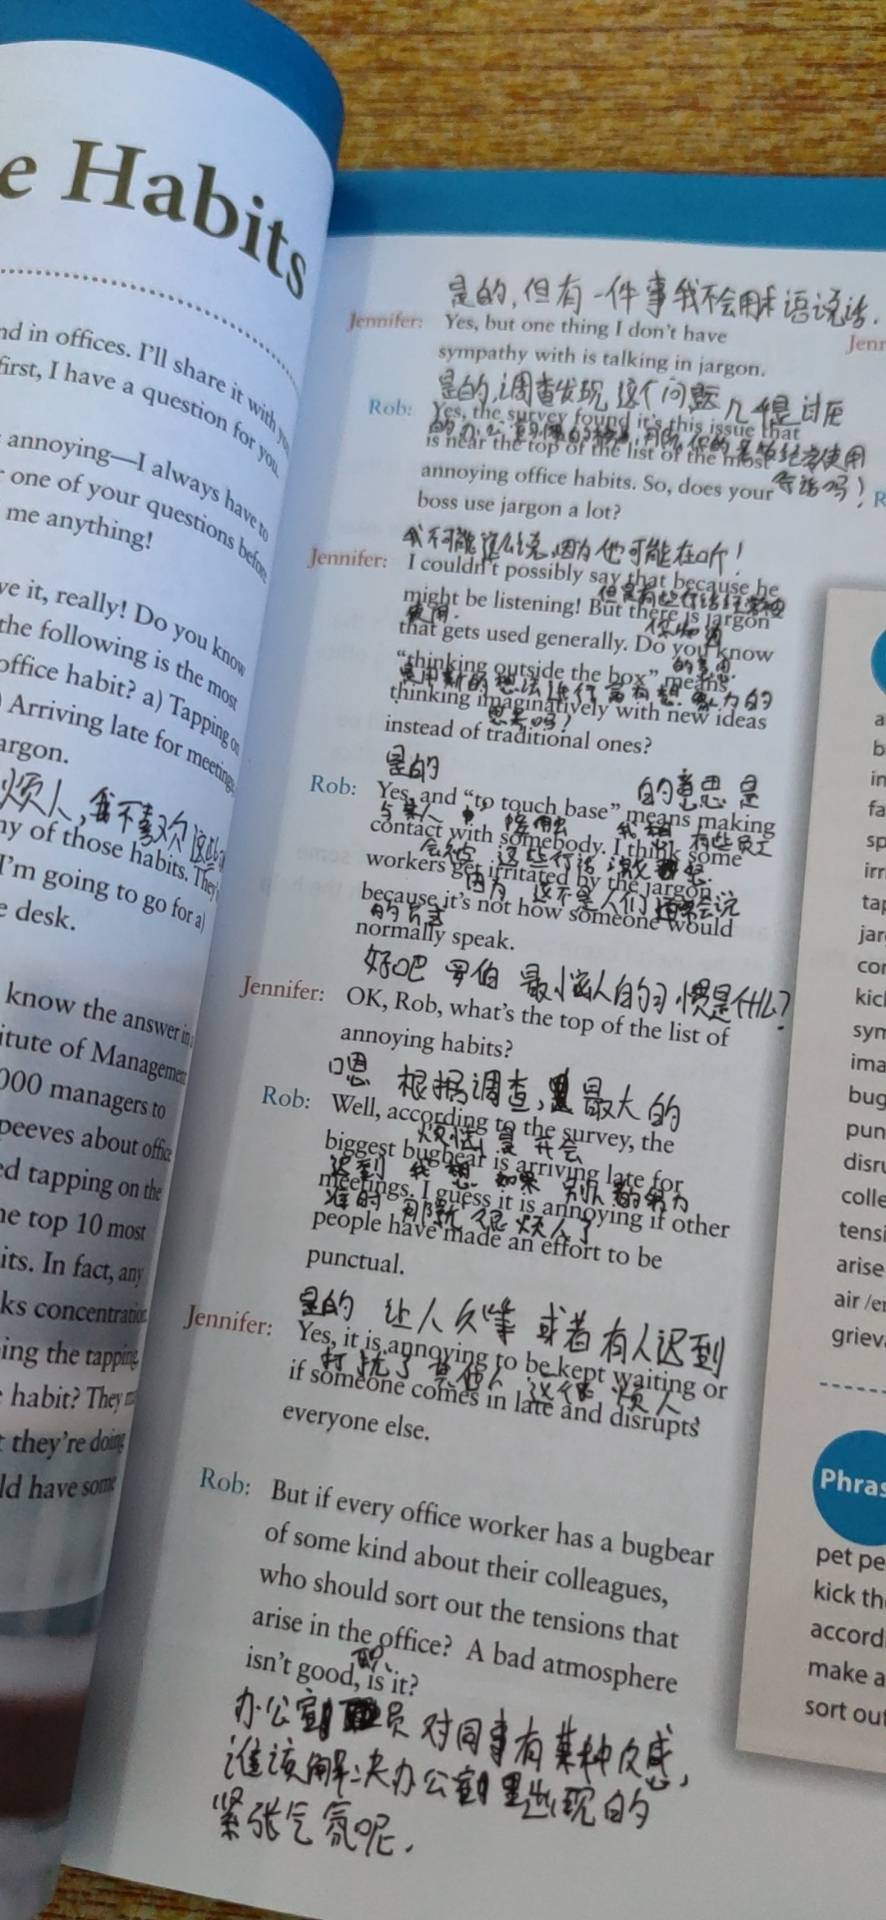 e Habits
nd in offices. I'll share it with you
first, I have a question for you.
annoying—I always have to
one of your questions before
me anything!
ve it, really! Do you know
the following is the most
office habit? a) Tapping on
Arriving late for meetings
argon.
烦人,我不喜欢这些
ny of those habits. They
I'm going to go for a)
e desk.
know the answer in a
itute of Management
000 managers to
peeves about office
ed tapping on the
ne top 10 most
its. In fact, any
ks concentration
ing the tapping
habit? They
they're doing
ld have some
是的,但有一件事我不会用术语说话.
Jennifer: Yes, but one thing I don't have
sympathy with is talking in jargon.
是的,调查发现这个问题几
Rob: Yes, the survey found it's this issue that
is near the top of the list of the most
annoying office habits. So, does your
boss use jargon a lot?
我不可能这么说,因为他可能在听!
Jennifer: I couldn't possibly say that because he
might be listening! But there is jargon
使用.
that gets used generally. Do you know
的意思
"thinking outside the box" means
是用新的想法进行富有想象力的
thinking imaginatively with new ideas
思考吗?
instead of traditional ones?
是的 的意思是
Rob: Yes, and "to touch base" means making
与某人 接触 我想 有些员工
contact with somebody. I think some
这些行话 激怒
workers get irritated by the jargon
因为 这不是人们 会说
because it's not how someone would
的方式
normally speak.
好吧 罗伯 最恼人的习惯是什么?
Jennifer: OK, Rob, what's the top of the list of
annoying habits?
嗯 根据调查, 最大的
Rob: Well, according to the survey, the
烦恼 是 开会
biggest bugbear is arriving late for
迟到 我想 如果 别人 努力
meetings. I guess it is annoying if other
准时 很烦人了
people have made an effort to be
punctual.
是的 让人久等 或者有人迟到
Jennifer: Yes, it is annoying to be kept waiting or
打扰了 其他人 这很 烦人,
if someone comes in late and disrupts
everyone else.
Rob: But if every office worker has a bugbear
of some kind about their colleagues,
who should sort out the tensions that
arise in the office? A bad atmosphere
isn't good, is it?
办公室 员对同事有某种反感,
谁该解决办公室里出现的
紧张气氛呢.
Jenn
R
a
b
in
fa
sp
irr
tap
jar
con
kick
sym
ima
bug
pun
disru
colle
tensi
arise
air /er
griev
Phras
pet pe
kick th
accord
make a
sort out